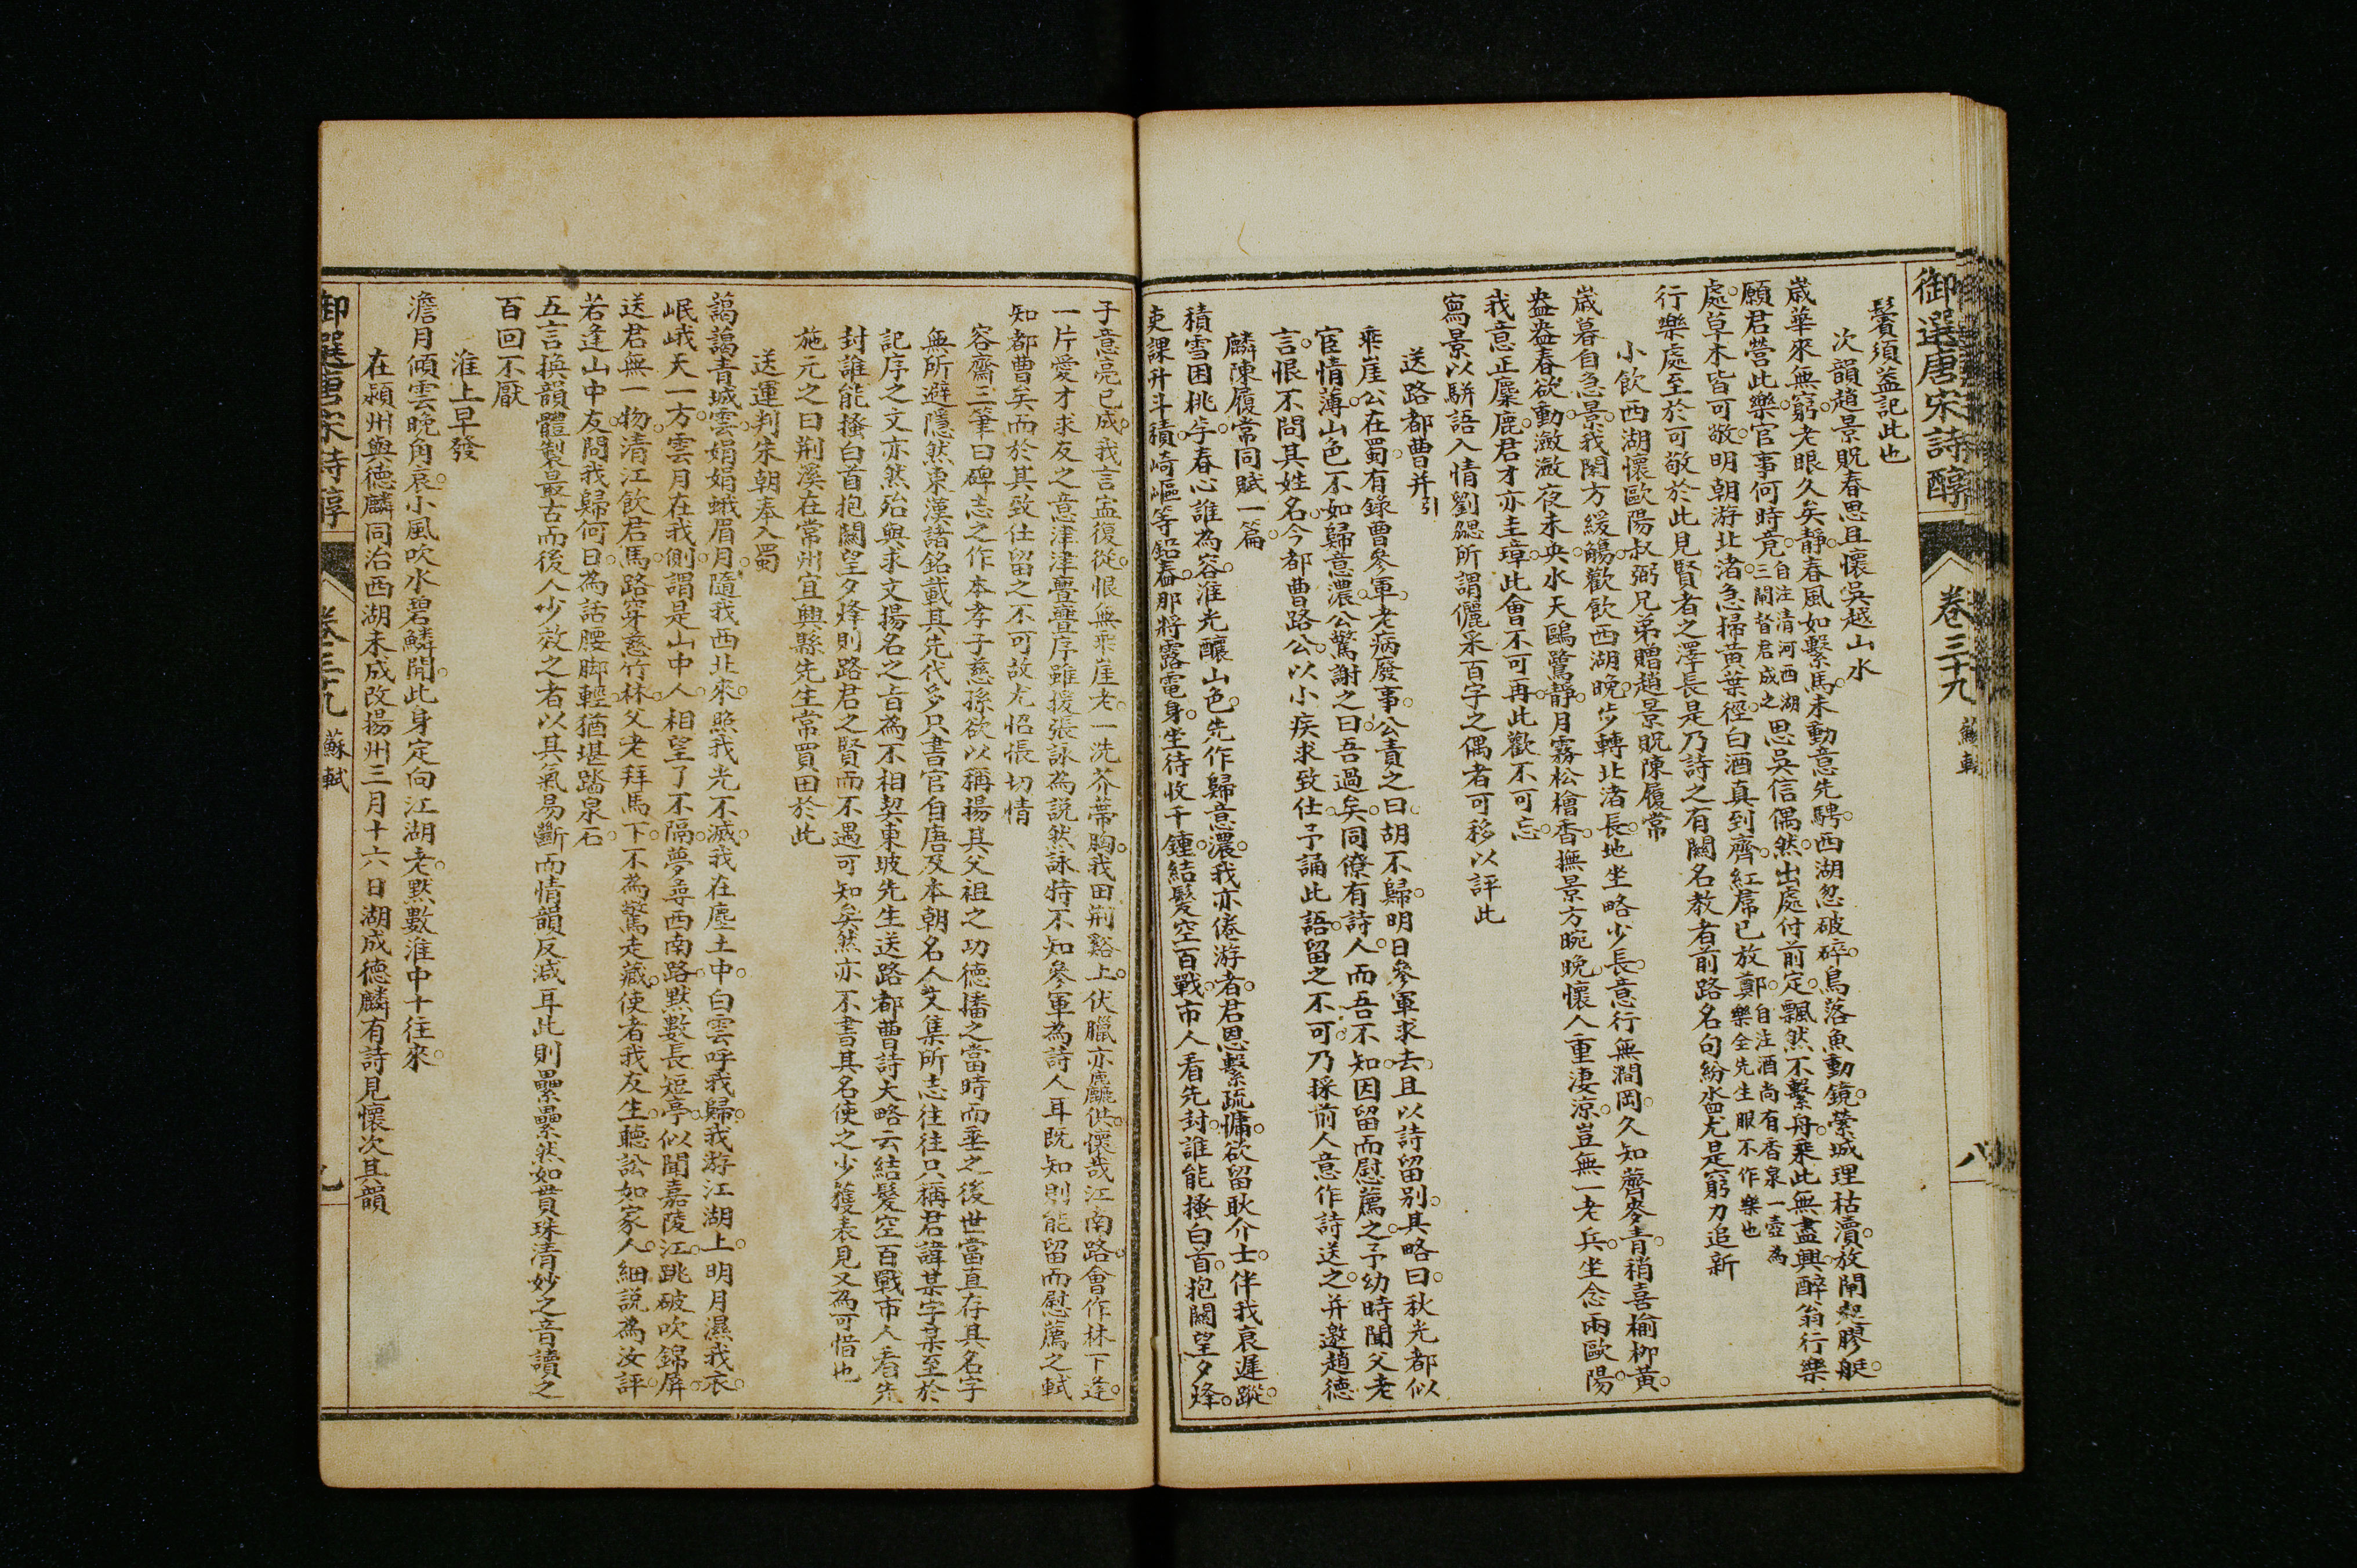 御選唐宋詩醇 卷三十九 蘇軾 八
鬢須蓋記此也
次韻趙景貺春思且懷吳越山水
歲華來無窮老眼久矣靜春風如繫馬未動意先騁西湖忽破碎鳥落魚動鏡縈城理枯瀆放閘起膠艇
願君營此樂官事何時竟自注清河西湖三閘督君成之思吳信偶然出處付前定飄然不繫舟乘此無盡興醉翁行樂
處草木皆可敬明朝游北渚急掃黃葉徑白酒真到齊紅帬已放鄭自注酒尚有香泉一壺為樂全先生服不作樂也
行樂處至於可敬於此見賢者之澤長是乃詩之有關名教者前路名句紛沓尤是窮力追新
小飲西湖懷歐陽叔弼兄弟贈趙景貺陳履常
歲暮自急景我閑方緩觴歡飲西湖晚步轉北渚長地坐略少長意行無澗岡久知薺麥青稍喜榆柳黃
盎盎春欲動瀲瀲夜未央水天鷗鷺靜月霧松檜香撫景方晼晚懷人重淒涼豈無一老兵坐念兩歐陽
我意正麋鹿君才亦圭璋此會不可再此歡不可忘
寫景以駢語入情劉勰所謂儷采百字之偶者可移以評此
送路都曹并引
乘崖公在蜀有錄曹參軍老病廢事公責之曰胡不歸明日參軍求去且以詩留別其略曰秋光都似
宦情薄山色不如歸意濃公驚謝之曰吾過矣同僚有詩人而吾不知因留而慰薦之予幼時聞父老
言恨不問其姓名今都曹路公以小疾求致仕予誦此語留之不可乃採前人意作詩送之并邀趙德
麟陳履常同賦一篇
積雪困桃李春心誰為容淮光釀山色先作歸意濃我亦倦游者君恩繫疏慵欲留耿介士伴我哀遲蹤
吏課升斗積崎嶇等鉛舂那將露電身坐待收千鍾結髮空百戰市人看先封誰能搔白首抱關望夕烽
子意亮已成我言寍復從恨無乘崖老一洗芥蔕胸我田荆谿上伏臘亦麤供懷哉江南路會作林下逢
一片愛才求友之意津津亹亹序雖援張詠為說然詠特不知參軍為詩人耳既知則能留而慰薦之軾
知都曹矣而於其致仕留之不可故尤怊悵切情
容齋三筆曰碑志之作本孝子慈孫欲以稱揚其父祖之功德播之當時而垂之後世當直存其名字
無所避隱然東漢諸銘載其先代多只書官自唐及本朝名人文集所志往往只稱君諱某字某至於
記序之文亦然殆與求文揚名之旨為不相契東坡先生送路都曹詩大略云結髮空百戰市人看先
封誰能搔白首抱關望夕烽則路君之賢而不遇可知矣然亦不書其名使之少獲表見又為可惜也
施元之曰荆溪在常州宜興縣先生常買田於此
送運判朱朝奉入蜀
藹藹青城雲娟娟蛾眉月隨我西北來照我光不滅我在塵土中白雲呼我歸我游江湖上明月濕我衣
岷峨天一方雲月在我側謂是山中人相望了不隔夢尋西南路默數長短亭似聞嘉陵江跳破吹錦屏
送君無一物清江飲君馬路穿慈竹林父老拜馬下不為驚走藏使者我友生聽訟如家人細說為汝評
若逢山中友問我歸何日為話腰腳輕猶堪踏泉石
五言換韻體製最古而後人少效之者以其氣易斷而情韻反減耳此則纍纍然如貫珠清妙之音讀之
百回不厭
淮上早發
澹月傾雲晚角哀小風吹水碧鱗開此身定向江湖老默數淮中十往來
在潁州與德麟同治西湖未成改揚州三月十六日湖成德麟有詩見懷次其韻
御選唐宋詩醇 卷三十九 蘇軾 九